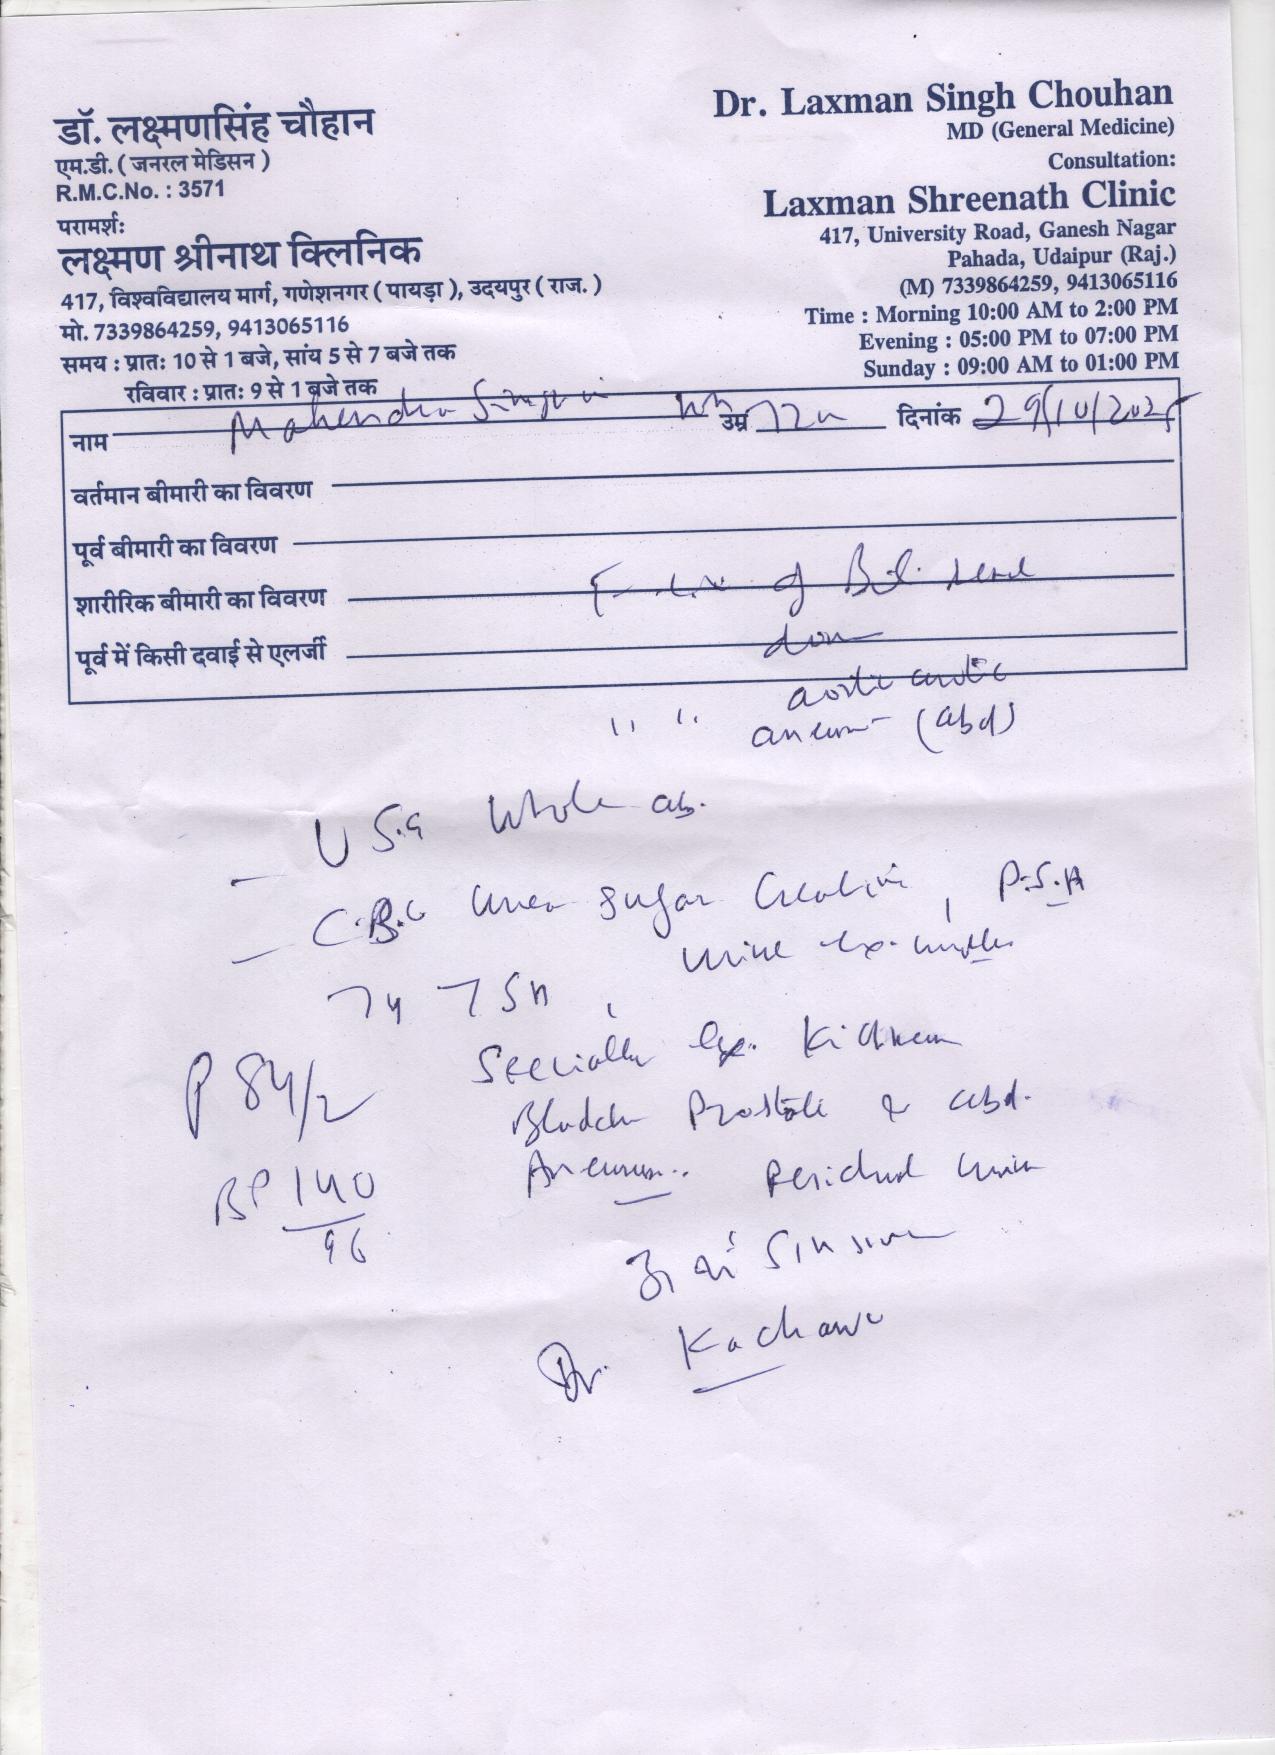 डॉ. लक्ष्मणसिंह चौहान
एम.डी. ( जनरल मेडिसन )
R.M.C.No. : 3571
परामर्शः
लक्ष्मण श्रीनाथ क्लिनिक
417, विश्वविद्यालय मार्ग, गणेशनगर ( पायड़ा ), उदयपुर ( राज. )
मो. 7339864259, 9413065116
समय : प्रातः 10 से 1 बजे, सांय 5 से 7 बजे तक
रविवार : प्रातः 9 से 1 बजे तक
Dr. Laxman Singh Chouhan
MD (General Medicine)
Consultation:
Laxman Shreenath Clinic
417, University Road, Ganesh Nagar
Pahada, Udaipur (Raj.)
(M) 7339864259, 9413065116
Time : Morning 10:00 AM to 2:00 PM
Evening : 05:00 PM to 07:00 PM
Sunday : 09:00 AM to 01:00 PM
नाम Mahendra उम्र 72 दिनांक 29/10/2025
वर्तमान बीमारी का विवरण
पूर्व बीमारी का विवरण
शारीरिक बीमारी का विवरण of
पूर्व में किसी दवाई से एलर्जी
aortic
(abd)
- U S.G Whole ab.
- C.B.C Urea Sugar Creatinine, P.S.A
Urine
Specially Kidney
P 84/2
Bladder Prostate & abd.
BP 140/96
Residual Urine
Dr. Kachawa